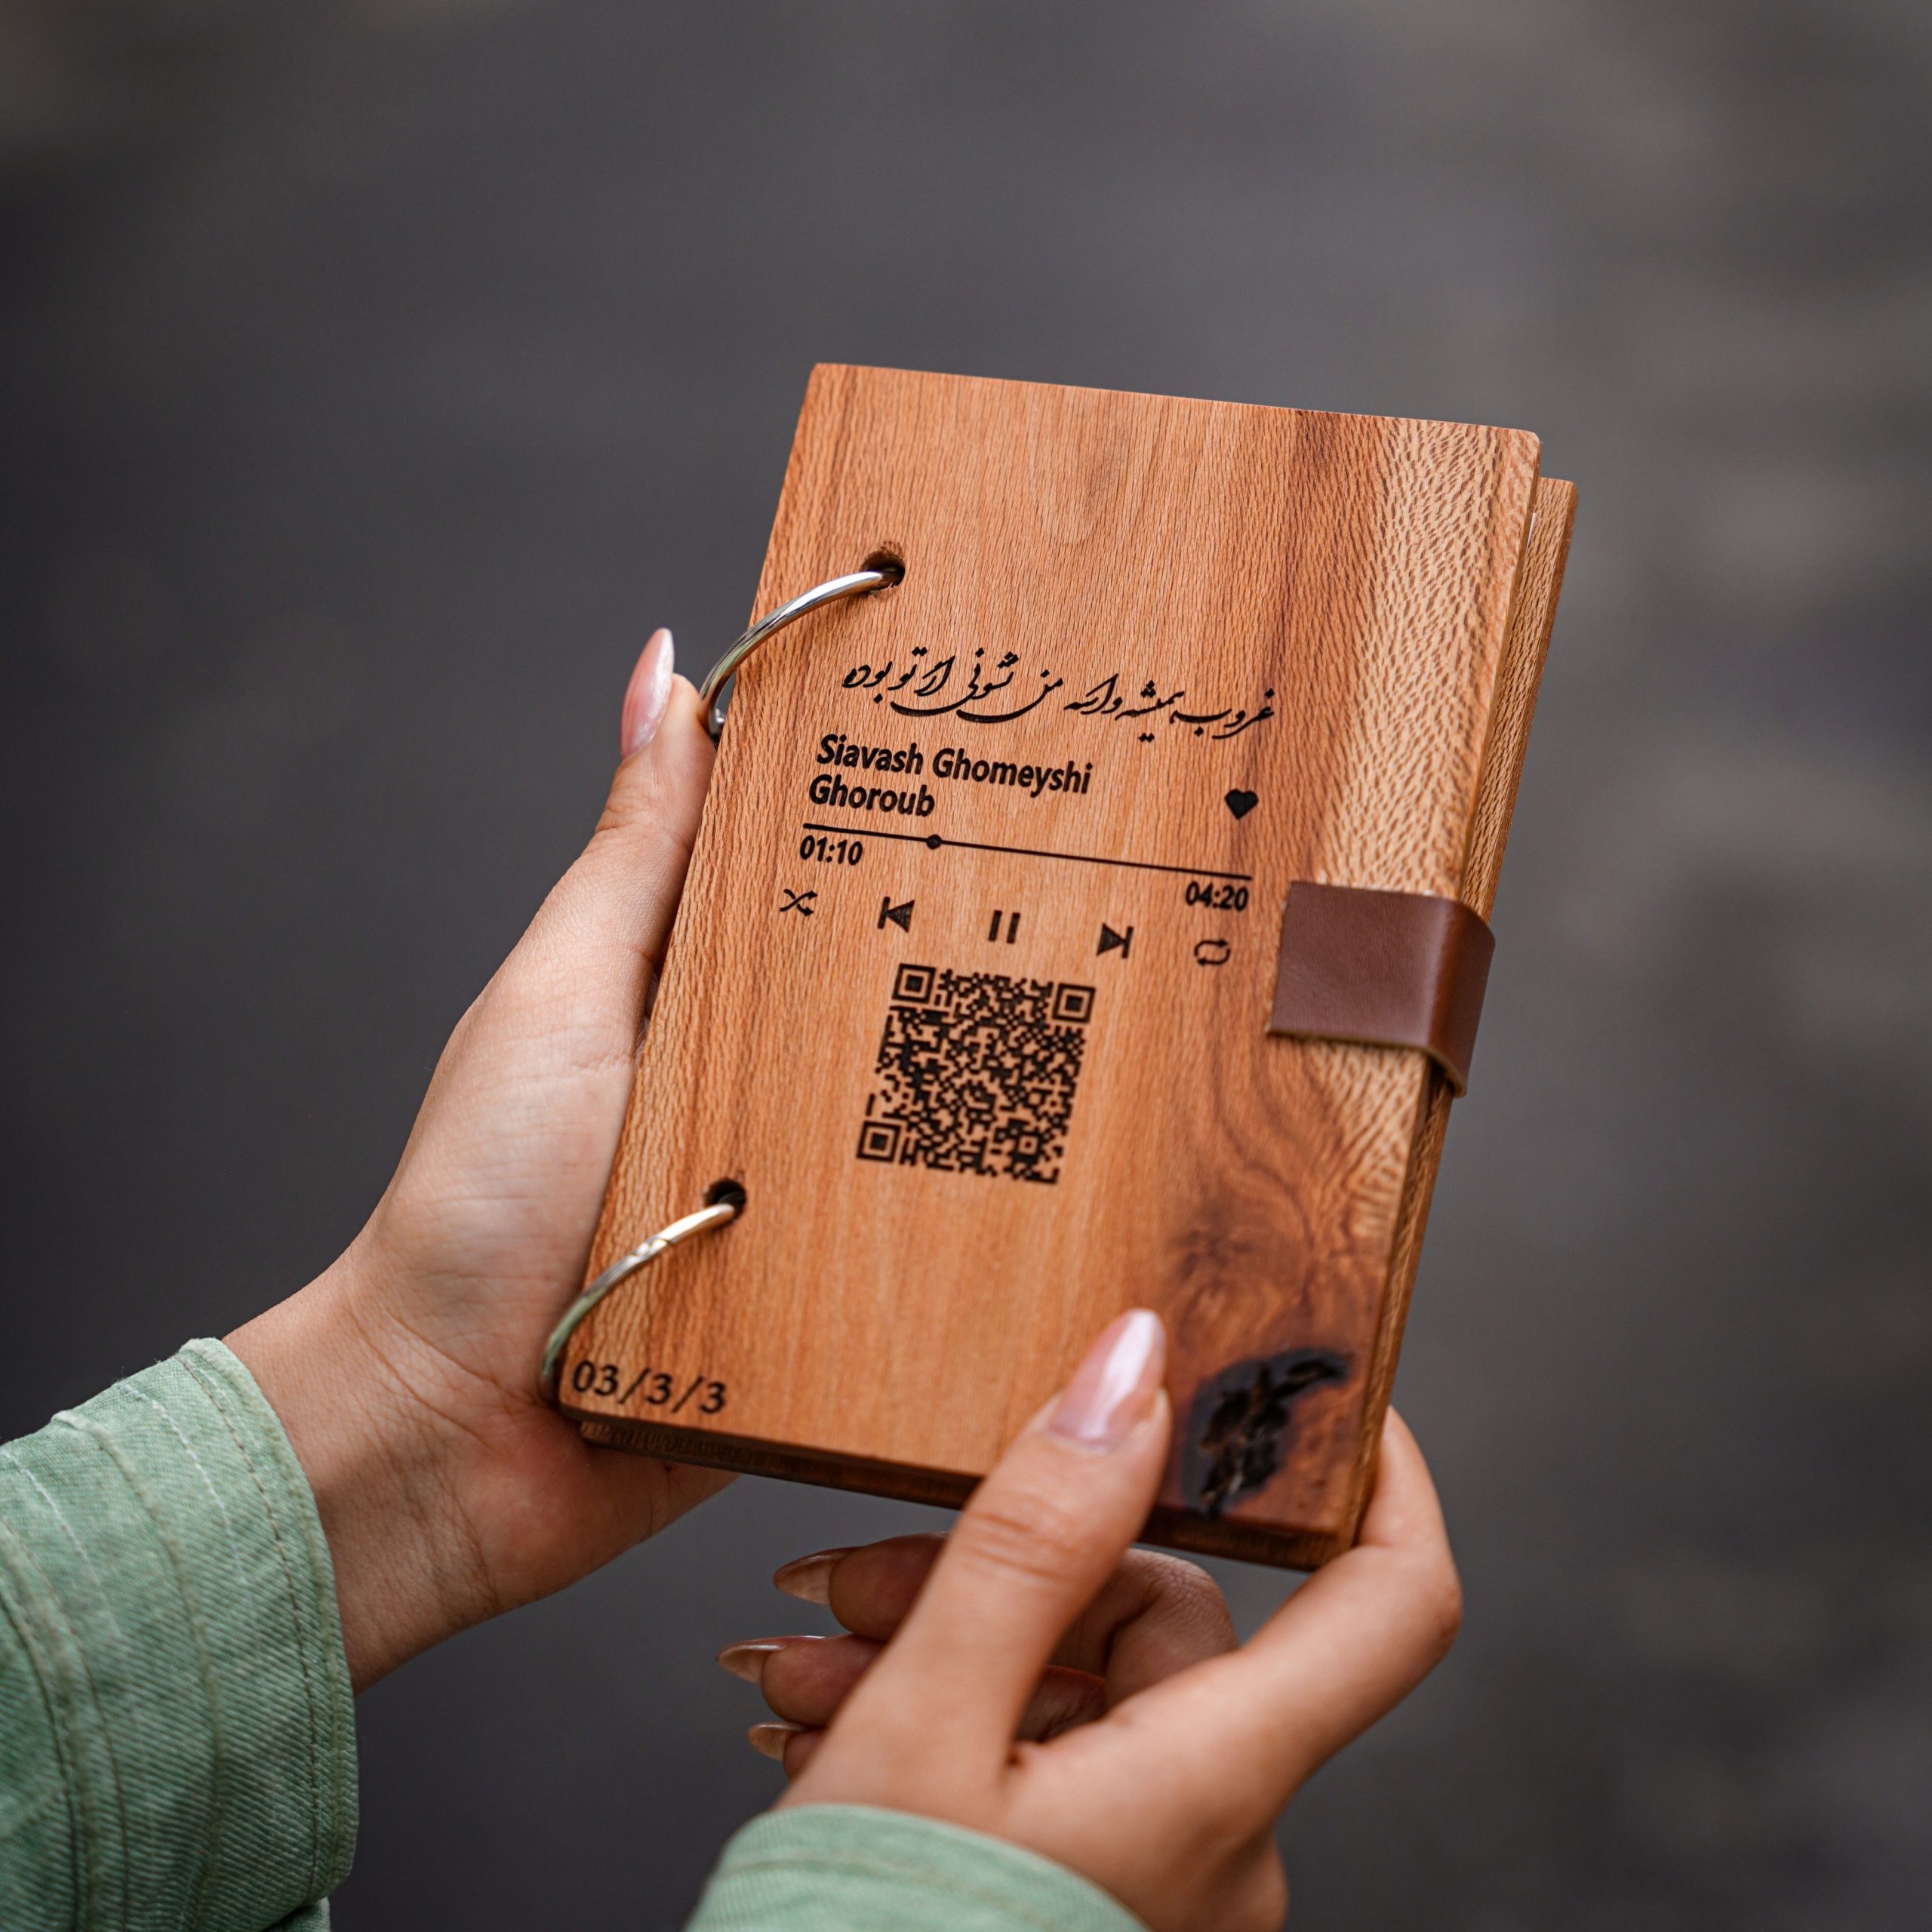 غروب همیشه واسه من نشونی از تو بوده
Siavash Ghomeyshi
Ghoroub
01:10
04:20
03/3/3